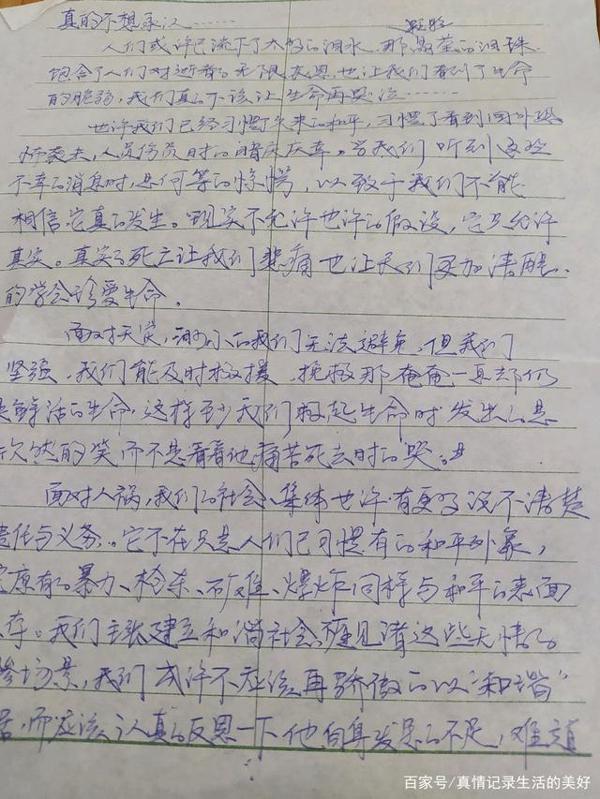 真的不想承认………
人们或许已流下了太多的泪水,那晶莹的泪珠
饱含了人们对逝者的无限哀思,也让我们看到了生命
的脆弱,我们真的不该让生命再哭泣………
也许我们已经习惯了久来的和平,习惯了看到国外恐
怖袭击,人员伤员时的暗自庆幸。当我们听到这些
不幸的消息时,是何等的惊愕,以致于我们不能
相信它真的发生。现实不允许也许的假设,它只允许
真实。真实的死亡让我们悲痛也让我们更加清醒、
的学会珍爱生命。
面对天灾,渺小的我们无法避免,但我们
坚强,我们能及时救援,挽救那奄奄一息却仍
是鲜活的生命,这样至少我们救起生命时发出的是
欣然的笑而不是看着他痛苦死去时的哭。
面对人祸,我们的社会、集体也许有更多说不清楚
责任与义务。它不在只是人们已习惯有的和平外象,
原有的暴力、枪杀、矿难、爆炸同样与和平的表面
存。我们主张建立和谐社会,碰见诸这些无情的
惨场景,我们或许不应该再骄傲的以“和谐”
居,而应该认真的反思一下他自身发展的不足,难道
百家号/真情记录生活的美好